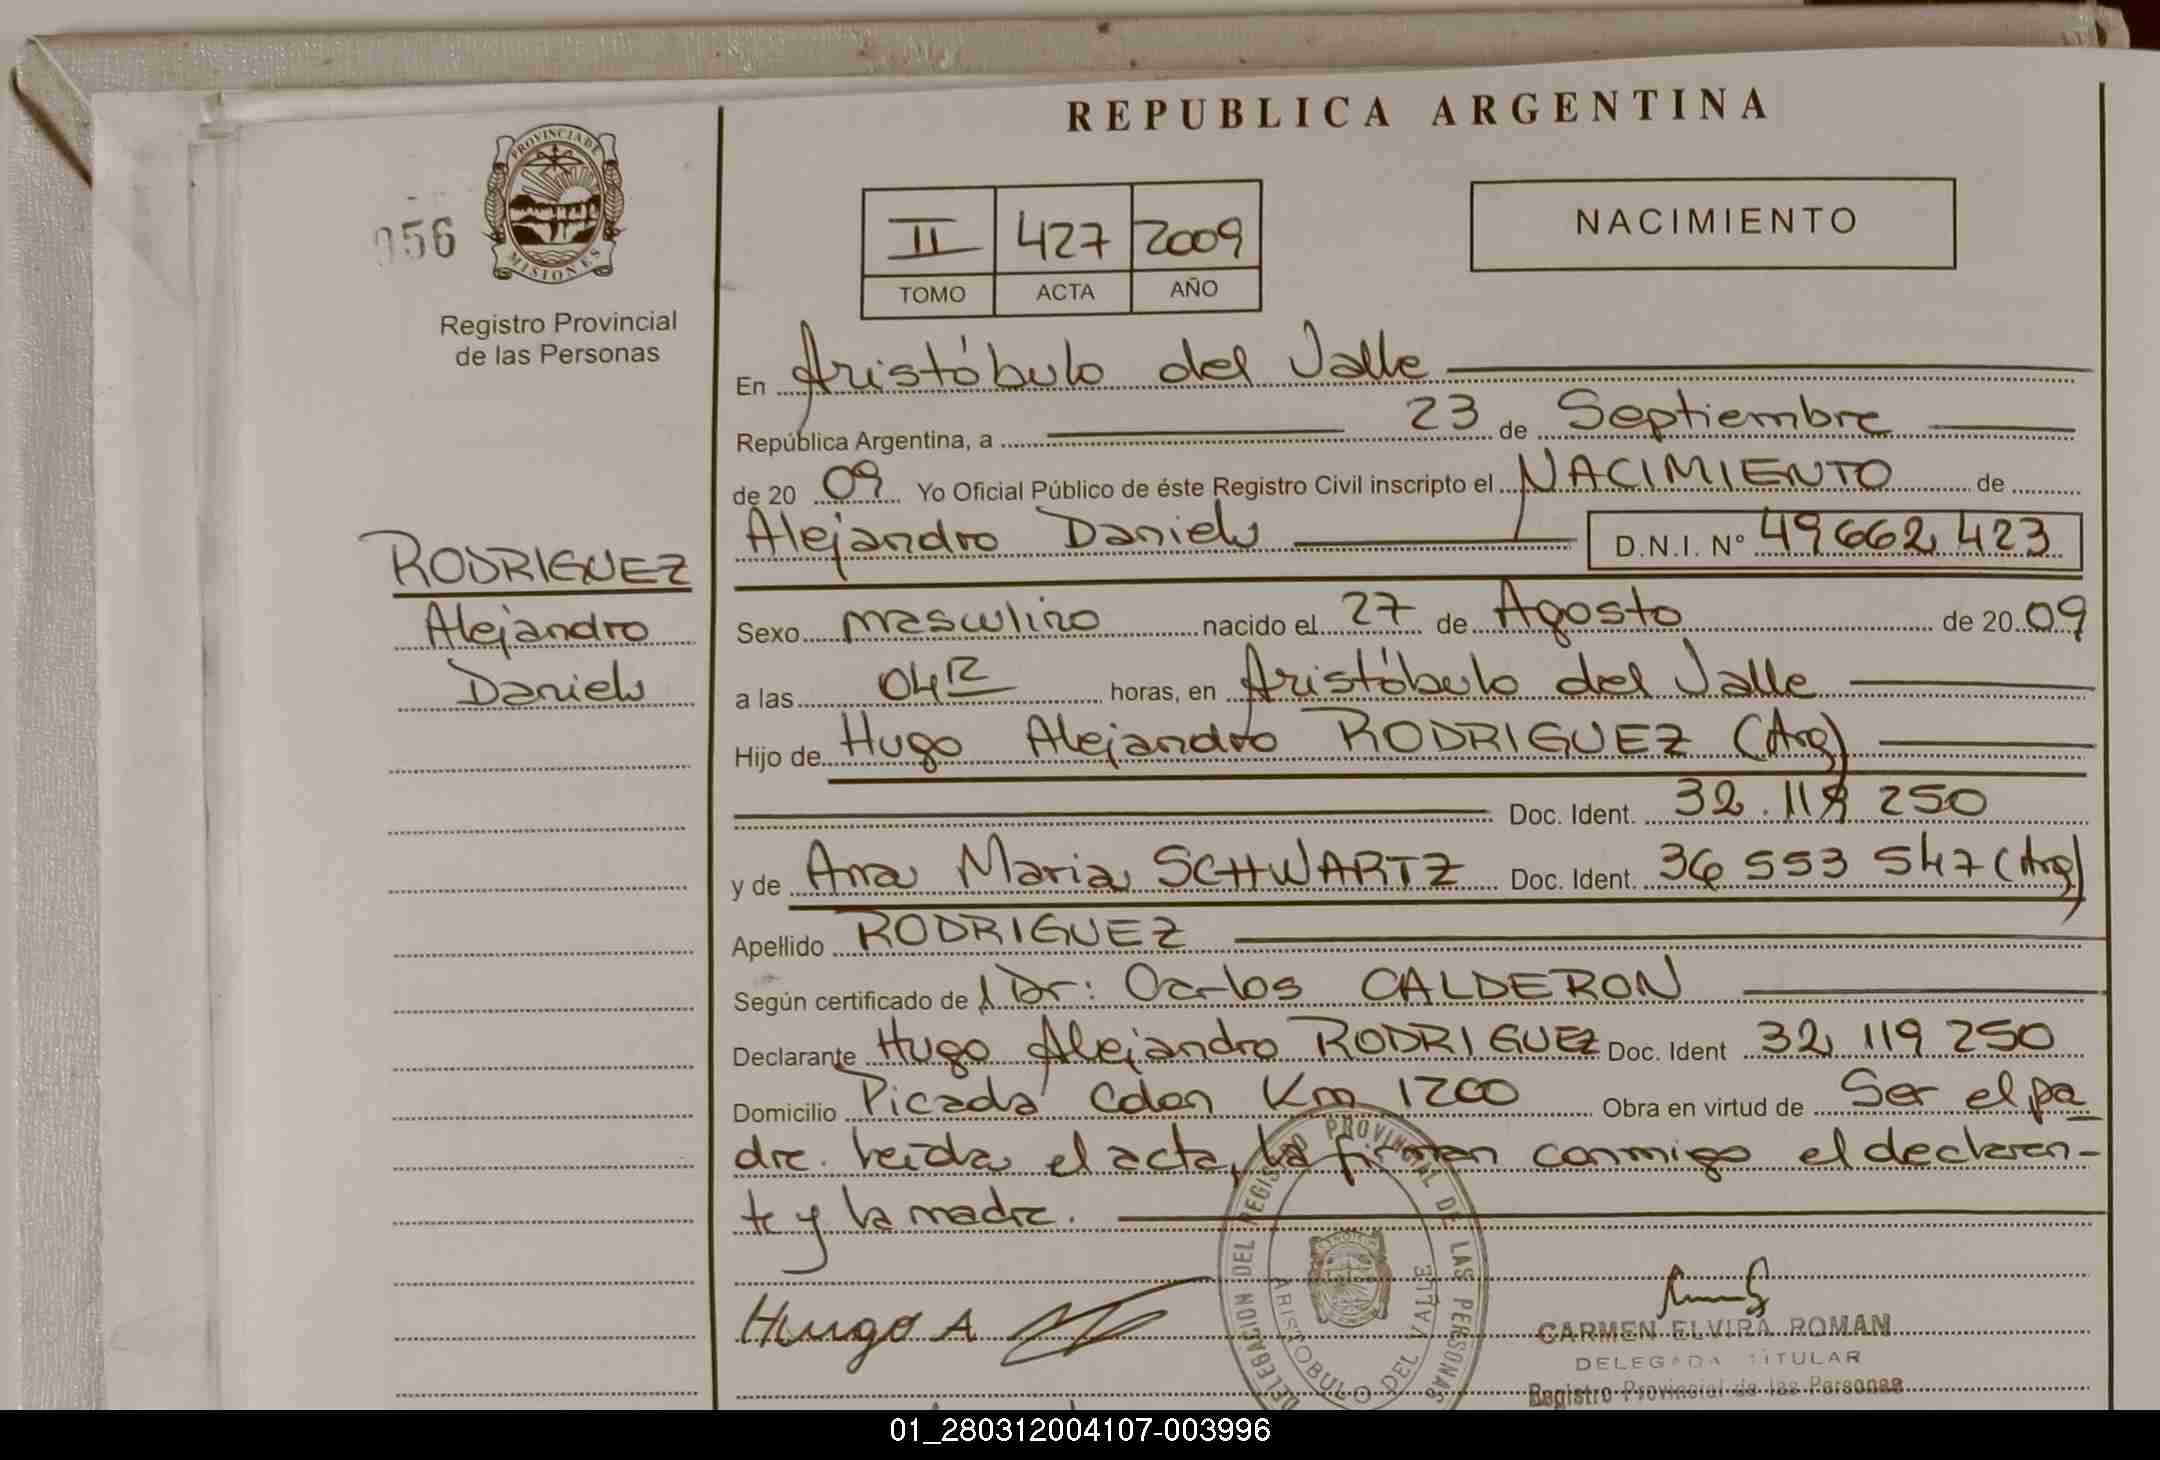 REPUBLICA ARGENTINA
PROVINCIA DE MISIONES
056
Registro Provincial
de las Personas
II 427 2009
TOMO ACTA AÑO
NACIMIENTO
En Aristóbulo del Valle
República Argentina, a 23 de Septiembre
de 20 09 Yo Oficial Público de éste Registro Civil inscripto el NACIMIENTO de
Alejandro Daniel D.N.I. N° 49662423
RODRIGUEZ
Alejandro
Daniel
Sexo masculino nacido el 27 de Agosto de 20 09
a las 04 horas, en Aristóbulo del Valle
Hijo de Hugo Alejandro RODRIGUEZ (Arg)
Doc. Ident. 32.119 250
y de Ana Maria SCHWARTZ Doc. Ident. 36 553 547 (Arg)
Apellido RODRIGUEZ
Según certificado de Dr: Carlos CALDERON
Declarante Hugo Alejandro RODRIGUEZ Doc. Ident 32 119 250
Domicilio Picada Colon Km 1200 Obra en virtud de Ser el pa
dre. Leída el acta, la firman conmigo el declaran-
te y la madre.
DELEGACION DEL REGISTRO PROVINCIAL DE LAS PERSONAS
ARISTOBULO DEL VALLE
Hugo A
CARMEN ELVIRA ROMAN
DELEGADA TITULAR
Registro Provincial de las Personas
01_280312004107-003996